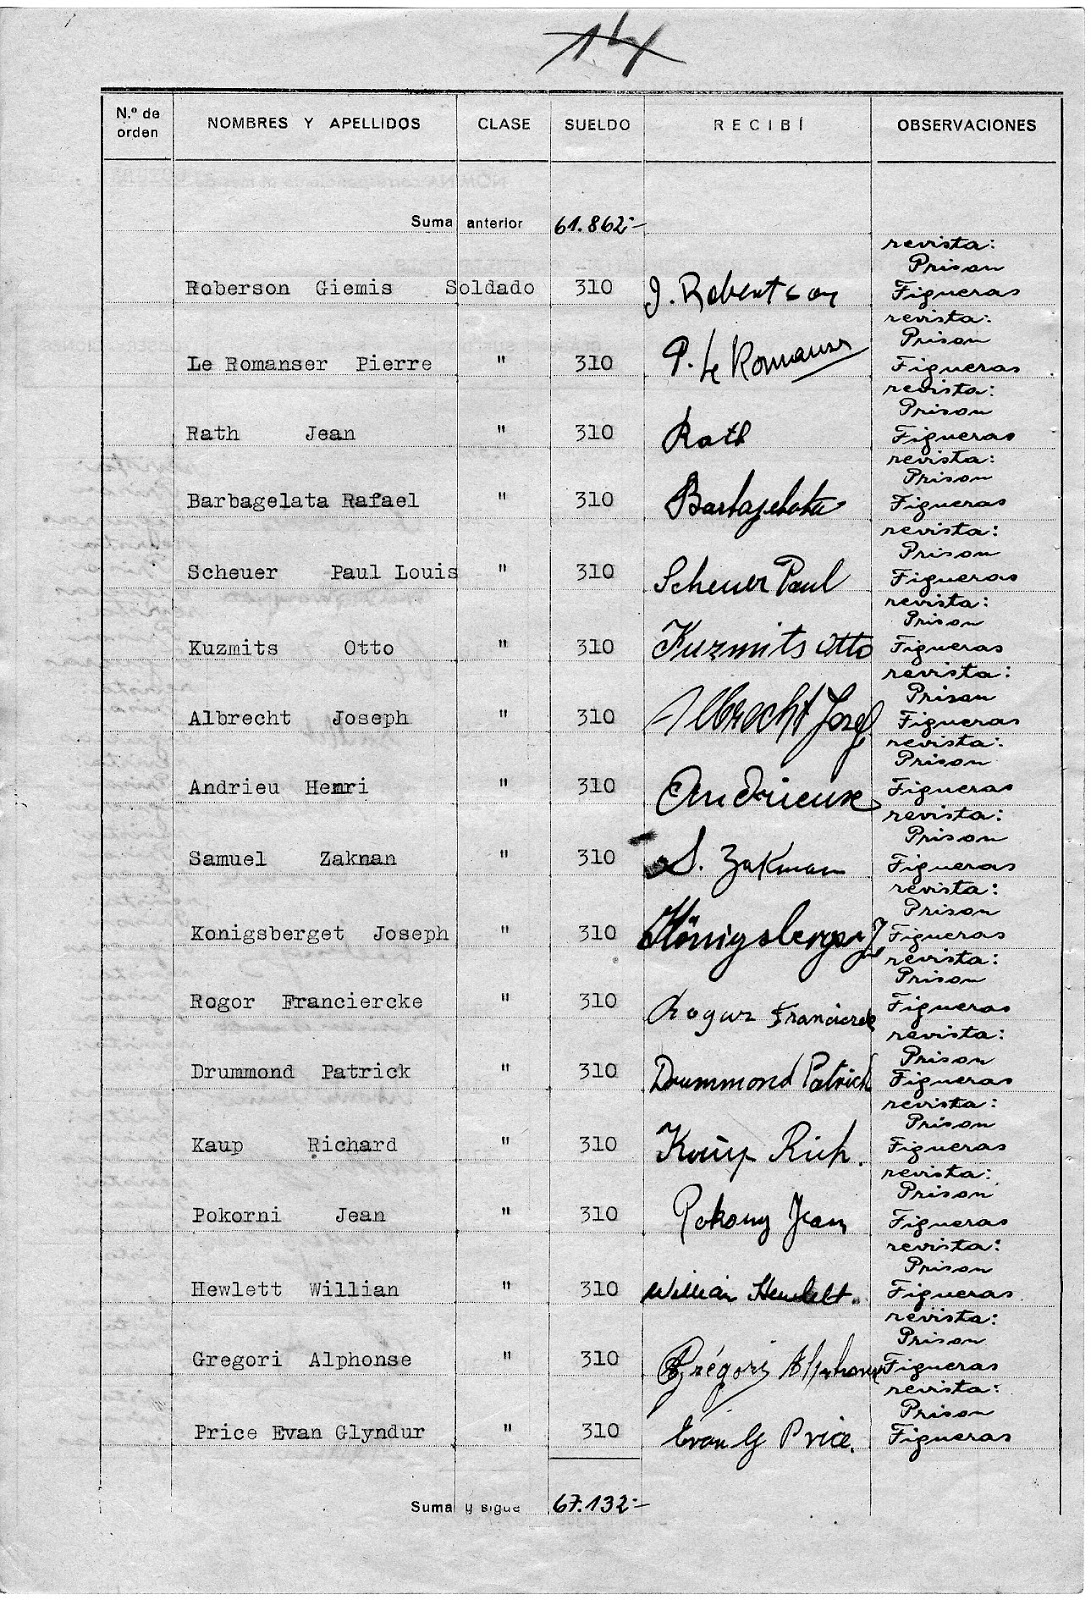 14
N.º de orden NOMBRES Y APELLIDOS CLASE SUELDO RECIBÍ OBSERVACIONES
Suma anterior 61.862:-
revista:
Prison
Roberson Giemis Soldado 310 J. Robertson Figueras
revista:
Prison
Le Romanser Pierre " 310 P. Le Romanser Figueras
revista:
Prison
Rath Jean " 310 Rath Figueras
revista:
Prison
Barbagelata Rafael " 310 Barbagelata Figueras
revista:
Prison
Scheuer Paul Louis " 310 Scheuer Paul Figueras
revista:
Prison
Kuzmits Otto " 310 Kuzmits Otto Figueras
revista:
Prison
Albrecht Joseph " 310 Albrecht Josef Figueras
revista:
Prison
Andrieu Henri " 310 Andrieux Figueras
revista:
Prison
Samuel Zaknan " 310 S. Zakman Figueras
revista:
Prison
Konigsberget Joseph " 310 Königsberger J. Figueras
revista:
Prison
Rogor Franciercke " 310 Rogur Figueras
revista:
Prison
Drummond Patrick " 310 Drummond Patrick Figueras
revista:
Prison
Kaup Richard " 310 Kaup Rich. Figueras
revista:
Prison
Pokorni Jean " 310 Pokorny Jean Figueras
revista:
Prison
Hewlett Willian " 310 William Hewlett. Figueras
revista:
Prison
Gregori Alphonse " 310 Grégori Alphonse Figueras
revista:
Prison
Price Evan Glyndur " 310 Evan G Price. Figueras
Suma y sigue 67.132:-